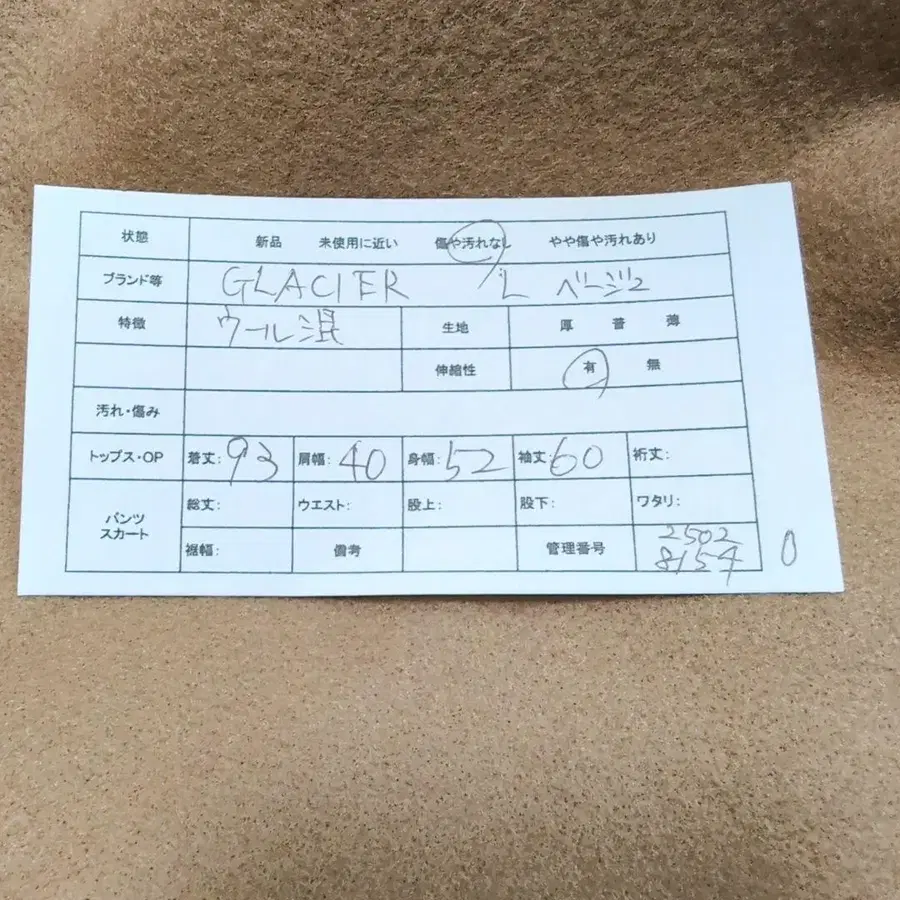 状態 新品 未使用に近い 傷や汚れなし やや傷や汚れあり
ブランド等 GLACIER L ベージュ
特徴 ウール混 生地 厚 普 薄
伸縮性 有 無
汚れ・傷み
トップス・OP 着丈:93 肩幅:40 身幅:52 袖丈:60 裄丈:
パンツ スカート 総丈: ウエスト: 股上: 股下: ワタリ:
裾幅: 備考 管理番号 2502 8154 0